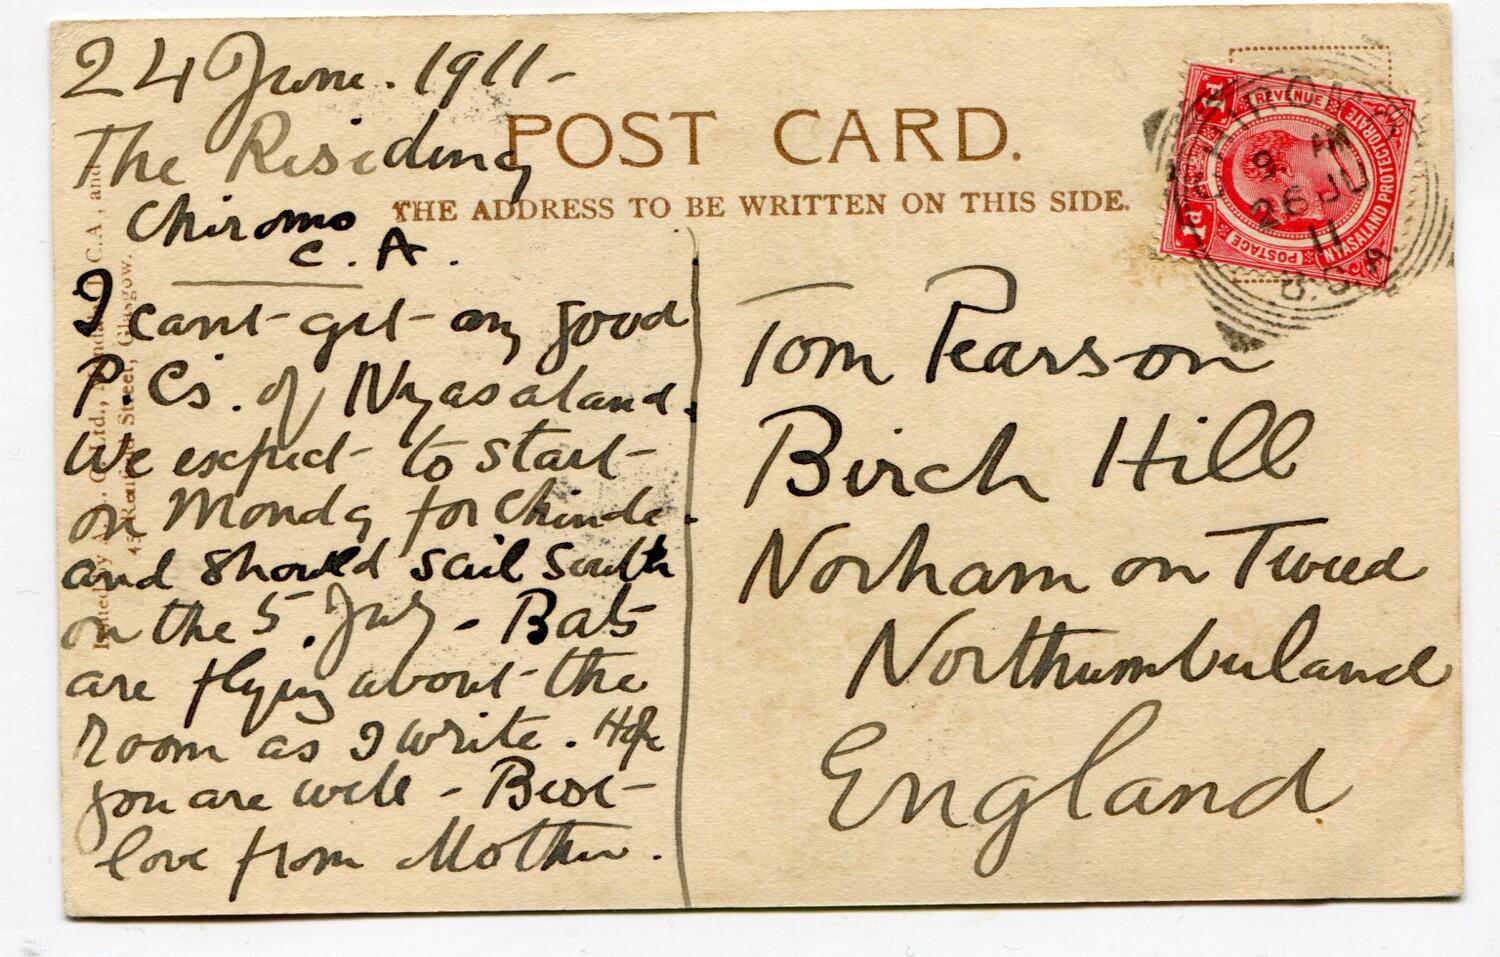 24 June. 1911 -
The Residency
Chiromo
C. A.
I cant get any good
P. Cs. of Nyasaland.
We expect to start
on Monday for Chinde.
and should sail south
on the 5. July - Bats
are flying about the
room as I write. Hope
you are well - Best
love from Mother.
POST CARD.
THE ADDRESS TO BE WRITTEN ON THIS SIDE.
Tom Pearson
Birch Hill
Norham on Tweed
Northumberland
England
REVENUE
NYASALAND PROTECTORATE
POSTAGE
1d
1d
CHIROMO
9 AM
26 JU
11
B.C.A.
Ltd.,
C.A., and
Street, Glasgow.